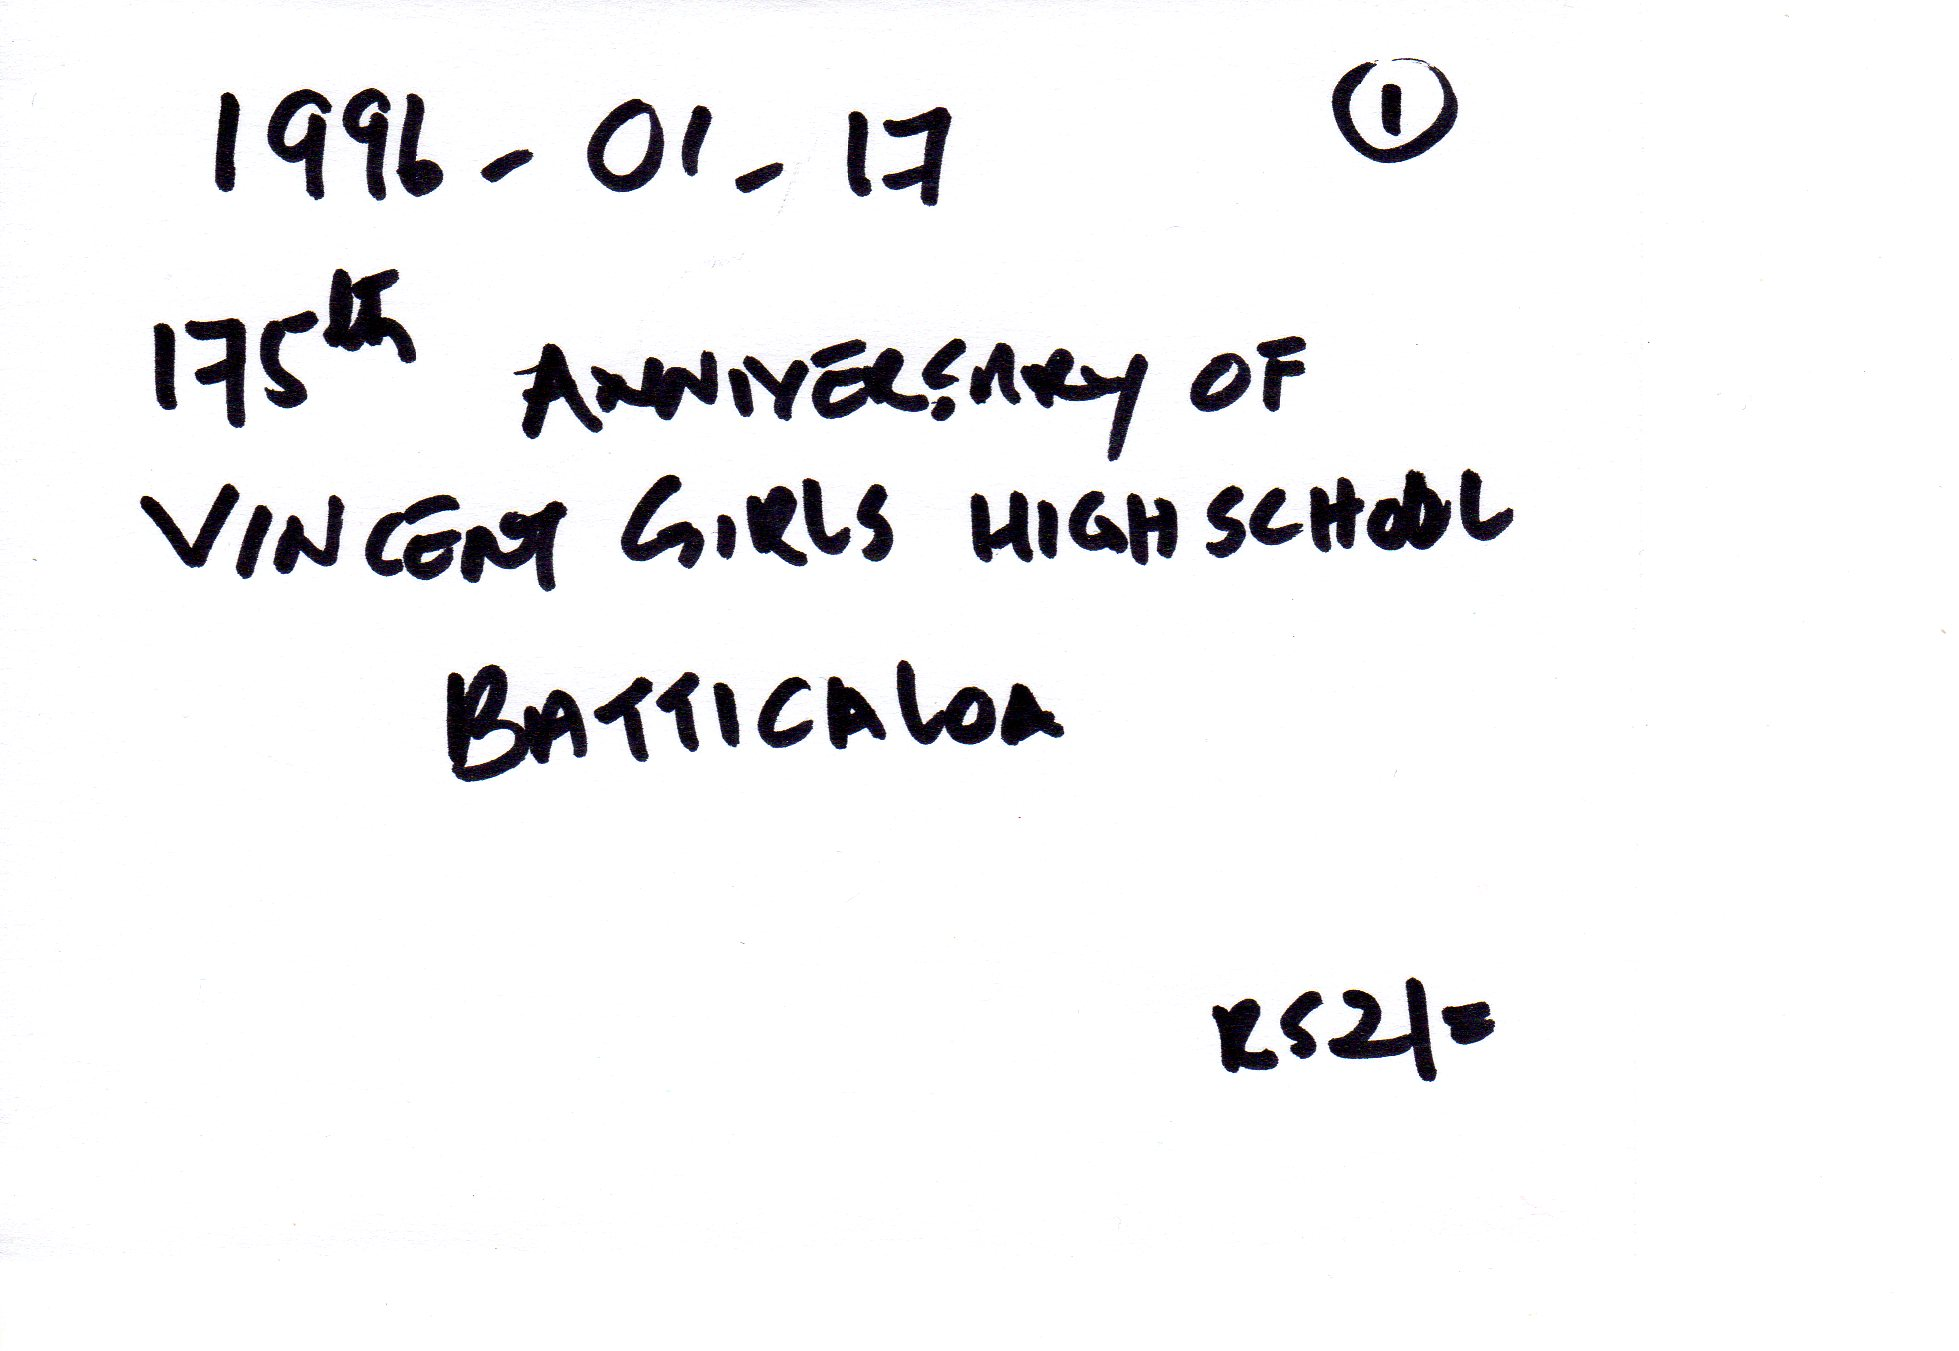 1996-01-17 ①
175th ANNIVERSARY OF
VINCENT GIRLS HIGH SCHOOL
BATTICALOA
RS2/=